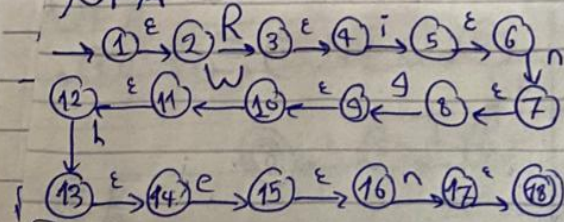 1 ε 2 R 3 ε 4 i 5 ε 6
n
12 ε 11 W 10 ε 9 g 8 ε 7
h
13 ε 14 e 15 ε 16 n 17 ε 18